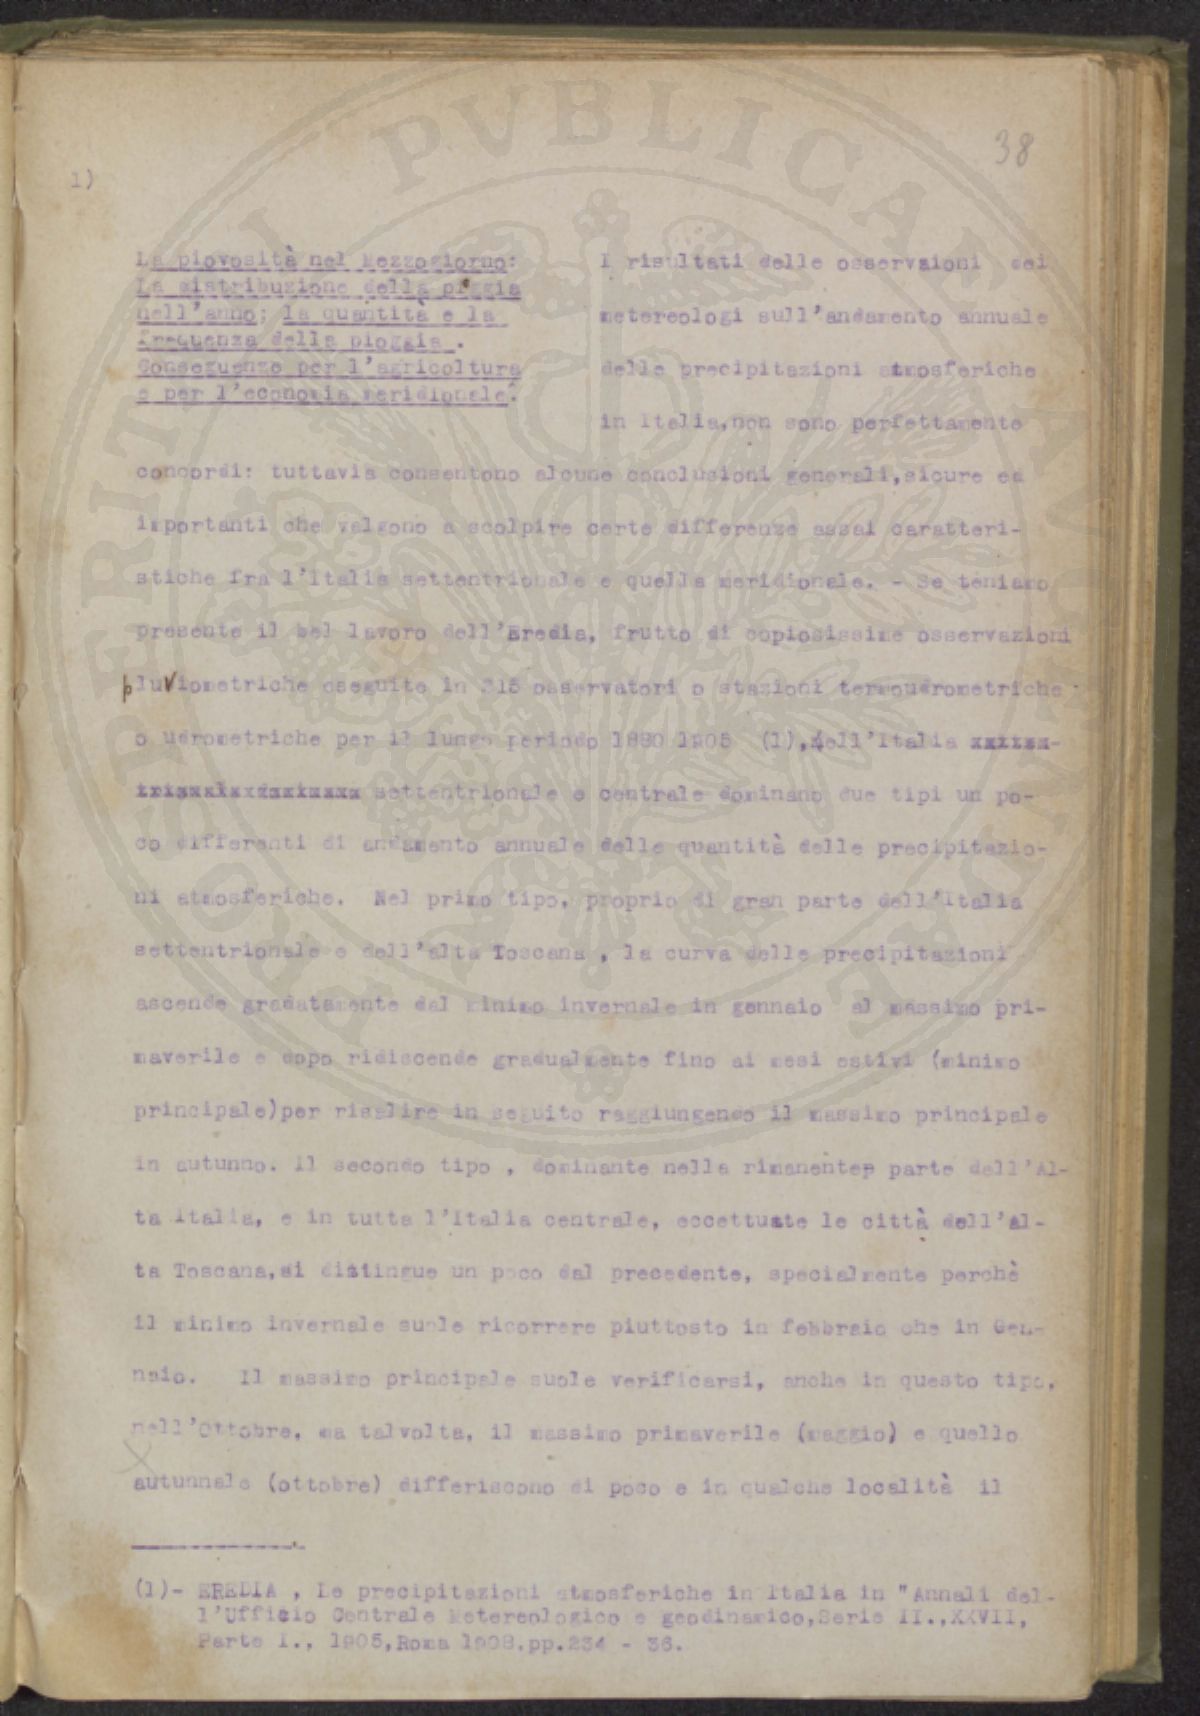 38
1)
La piovosità nel Mezzogiorno:
La distribuzione della pioggia
nell'anno; la quantità e la
frequenza della pioggia .
Conseguenze per l'agricoltura
e per l'economia meridionale.
I risultati delle osservaioni dei
metereologi sull'andamento annuale
delle precipitazioni atmosferiche
in Italia,non sono perfettamente
concordi: tuttavia consentono alcune conclusioni generali,sicure ed
importanti che valgono a scolpire certe differenze assai caratteri-
stiche fra l'Italia settentrionale e quella meridionale. - Se teniamo
presente il bel lavoro dell'Eredia, frutto di copiosissime osservazioni
pluviometriche eseguite in 315 osservatori o stazioni termoudrometriche
o udrometriche per il lungo periodo 1880 1905 (1),nell'Italia
settentrionale e centrale dominano due tipi un po-
co differenti di andamento annuale delle quantità delle precipitazio-
ni atmosferiche. Nel primo tipo, proprio di gran parte dell'Italia
settentrionale e dell'alta Toscana , la curva delle precipitazioni
ascende gradatamente dal minimo invernale in gennaio al massimo pri-
maverile e dopo ridiscende gradualmente fino ai mesi estivi (minimo
principale)per risalire in seguito raggiungendo il massimo principale
in autunno. Il secondo tipo , dominante nella rimanente parte dell'Al-
ta Italia, e in tutta l'Italia centrale, eccettuate le città dell'Al-
ta Toscana,si distingue un poco dal precedente, specialmente perchè
il minimo invernale suole ricorrere piuttosto in febbraio che in Gen-
naio. Il massimo principale suole verificarsi, anche in questo tipo,
nell'Ottobre, ma talvolta, il massimo primaverile (maggio) e quello
autunnale (ottobre) differiscono di poco e in qualche località il
(1)- EREDIA , Le precipitazioni atmosferiche in Italia in "Annali del-
l'Ufficio Centrale Metereologico e geodinamico,Serie II.,XXVII,
Parte I., 1905,Roma 1908.pp.234 - 36.